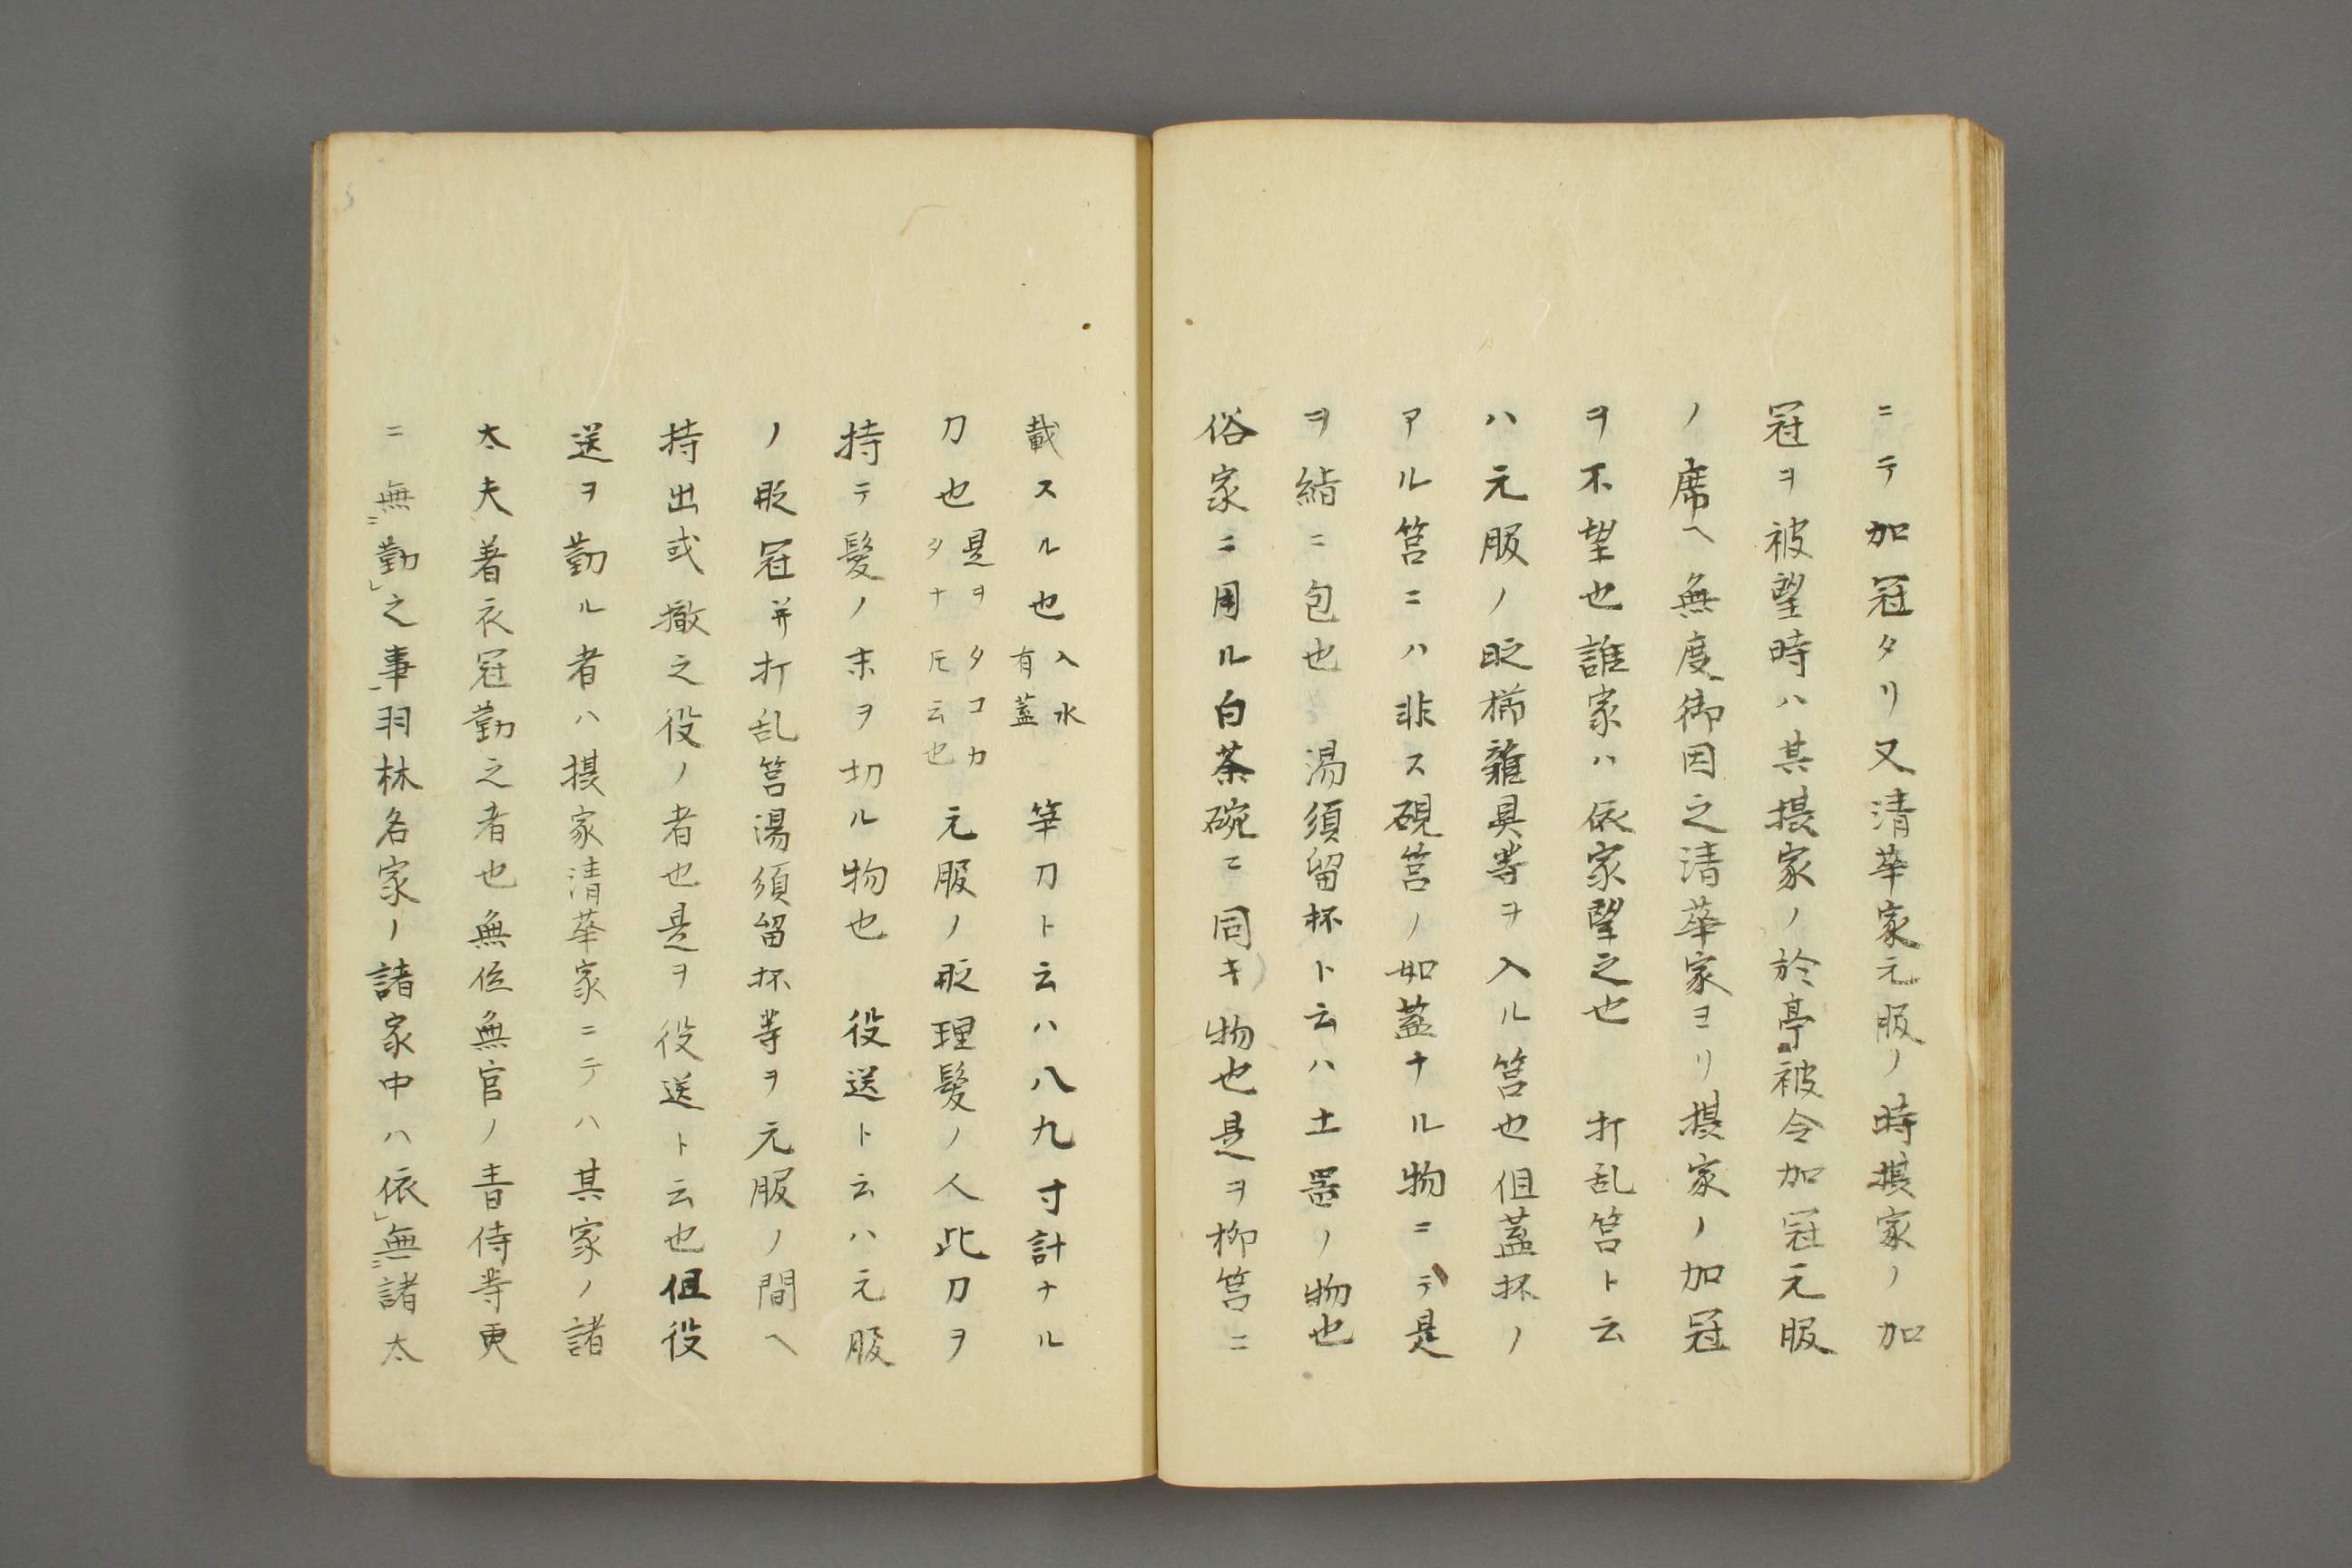 ニテ加冠タリ又清華家元服ノ時摂家ノ加
冠ヲ被望時ハ其摂家ノ於亭被令加冠元服
ノ席ヘ無度御因之清華家ヨリ摂家ノ加冠
ヲ不望也誰家ハ依家望之也　打乱筥ト云
ハ元服ノ時櫛雜具等ヲ入ル筥也但蓋抔ノ
アル筥ニハ非ス硯筥ノ如蓋ナル物ニテ是
ヲ絹ニ包也　湯須留杯ト云ハ土器ノ物也
俗家ニ用ル白茶碗ニ同キ物也是ヲ柳筥ニ
載スル也入水有蓋　笄刀ト云ハ八九寸計ナル
刀也是ヲタコカタナ圧云也　元服ノ時理髪ノ人此刀ヲ
持テ髪ノ末ヲ切ル物也　役送ト云ハ元服
ノ時冠并打乱筥湯須留杯等ヲ元服ノ間ヘ
持出或撤之役ノ者也是ヲ役送ト云也但役
送ヲ勤ル者ハ摂家清華家ニテハ其家ノ諸
太夫着衣冠勤之者也無位無官ノ青侍等更
ニ無勤之事羽林名家ノ諸家中ハ依無諸太